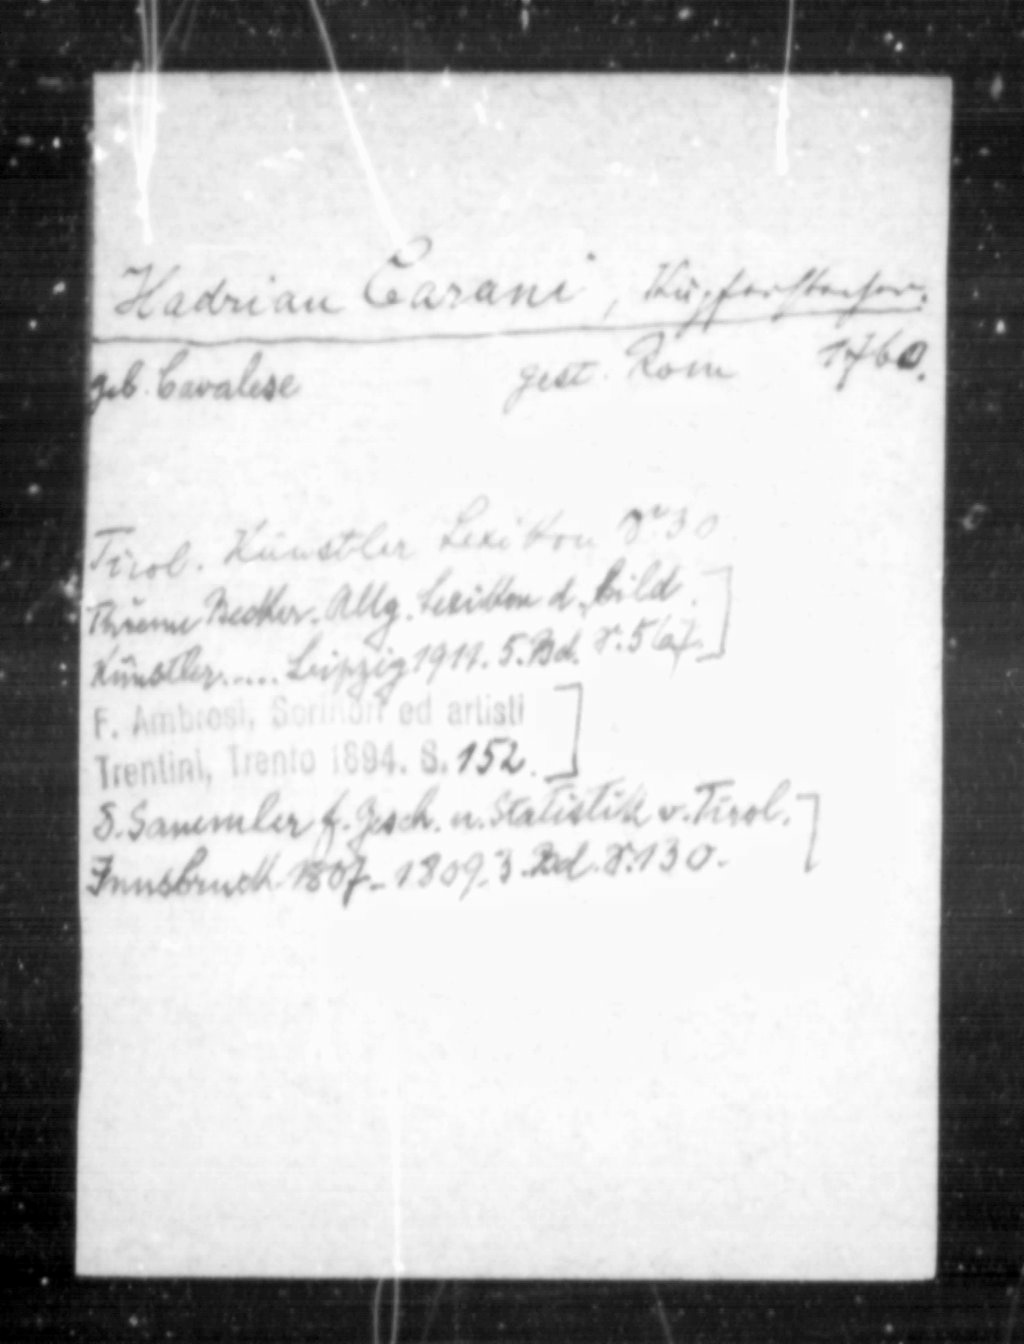 Hadrian Carani, Kupferstecher.
geb. Cavalese gest. Rom 1760.
Tirol. Künstler Lexikon S. 30
Thieme Becker. Allg. Lexikon d. bild.
Künstler..... Leipzig 1911. 5. Bd. S. 567.
F. Ambrosi, Scrittori ed artisti
Trentini, Trento 1894. S. 152.
D. Sammler f. Gesch. u. Statistik v. Tirol.
Innsbruck 1807-1809. 3. Bd. S. 130.